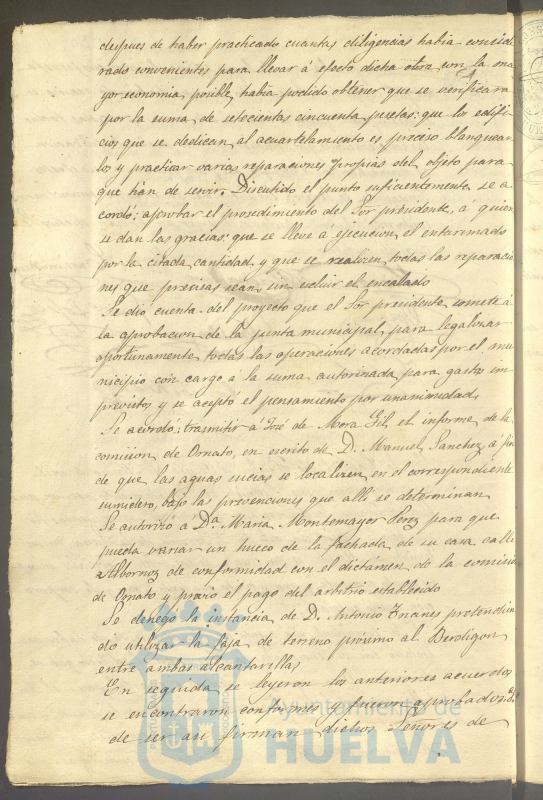 despues de haber practicado cuantas diligencias habia conside
rado convenientes para llevar á efecto dicha obra con la ma
yor economia posible, habia podido obtener que se verificara
por la suma de setecientas cincuenta pesetas: que los edifi
cios que se dedican al acuartelamiento es preciso blanquear
los y practicar varias reparaciones propias del objeto para
que han de servir. Discutido el punto suficientemente se a
cordó: aprobar el procedimiento del Sor presidente, a quien
se dan las gracias: que se lleve á ejecucion el entarimado
por la citada cantidad, y que se realicen todas las reparacio
nes que precisas sean, sin excluir el encalado
Se dio cuenta del proyecto que el Sor presidente somete á
la aprobacion de la junta municipal, para legalizar
oportunamente todas las operaciones acordadas por el mu
nicipio con cargo á la suma autorizada para gastos im
previstos y se aceptó el pensamiento por unanimidad.
Se acordó: trasmitir á José de Mora Gil, el informe de la
comision de Ornato, en escrito de D. Manuel Sanchez, á fin
de que las aguas sucias se localizen en el correspondiente
sumidero, bajo las prevenciones que alli se determinan
Se autorizó a Dª Maria Montemayor Perez para que
pueda variar un hueco de la fachada de su casa calle
Albornoz de conformidad con el dictamen de la comision
de Ornato y previo el pago del arbitrio establecido
Se denegó la instancia de D. Antonio Ynanes pretendien
do utilizar la faja de terreno proximo al
entre ambas alcantarillas
En seguida se leyeron los anteriores acuerdos
se encontraron conformes y fueron aprobados: de
de ser asi firman dichos Señores de
Ayuntamiento de
HUELVA